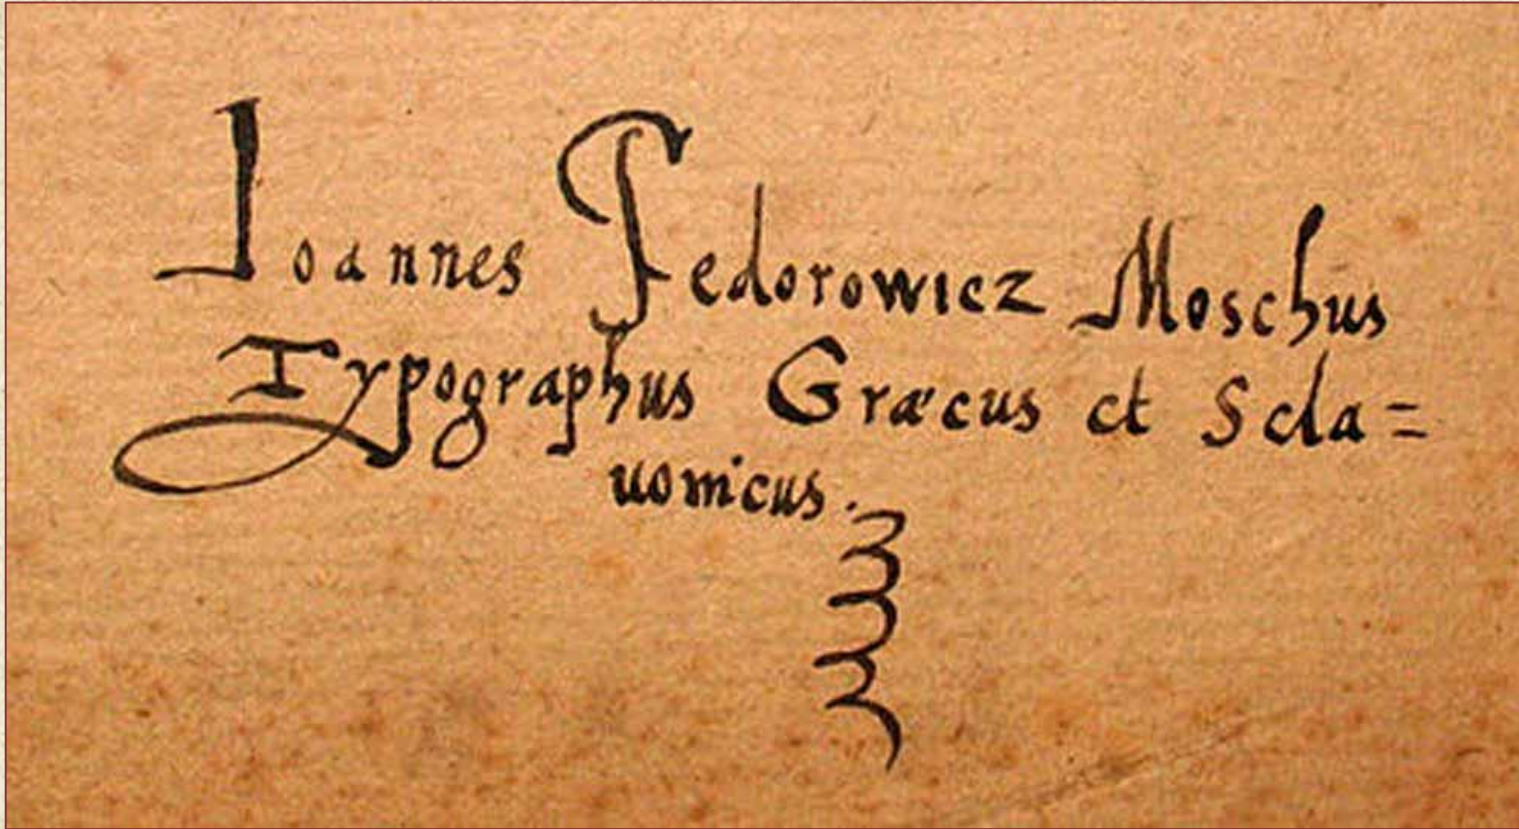 Joannes Fedorowicz Moschus
Typographus Græcus et Scla=
uonicus.